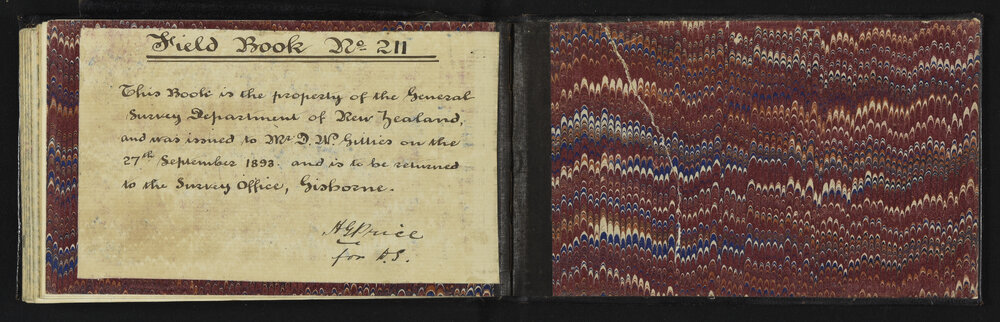 Field Book No. 211
This Book is the property of the General
Survey Department of New Zealand,
and was issued to Mr. D. W. Gillies on the
27th September 1893. and is to be returned
to the Survey Office, Gisborne.
H G Price
for D.S.